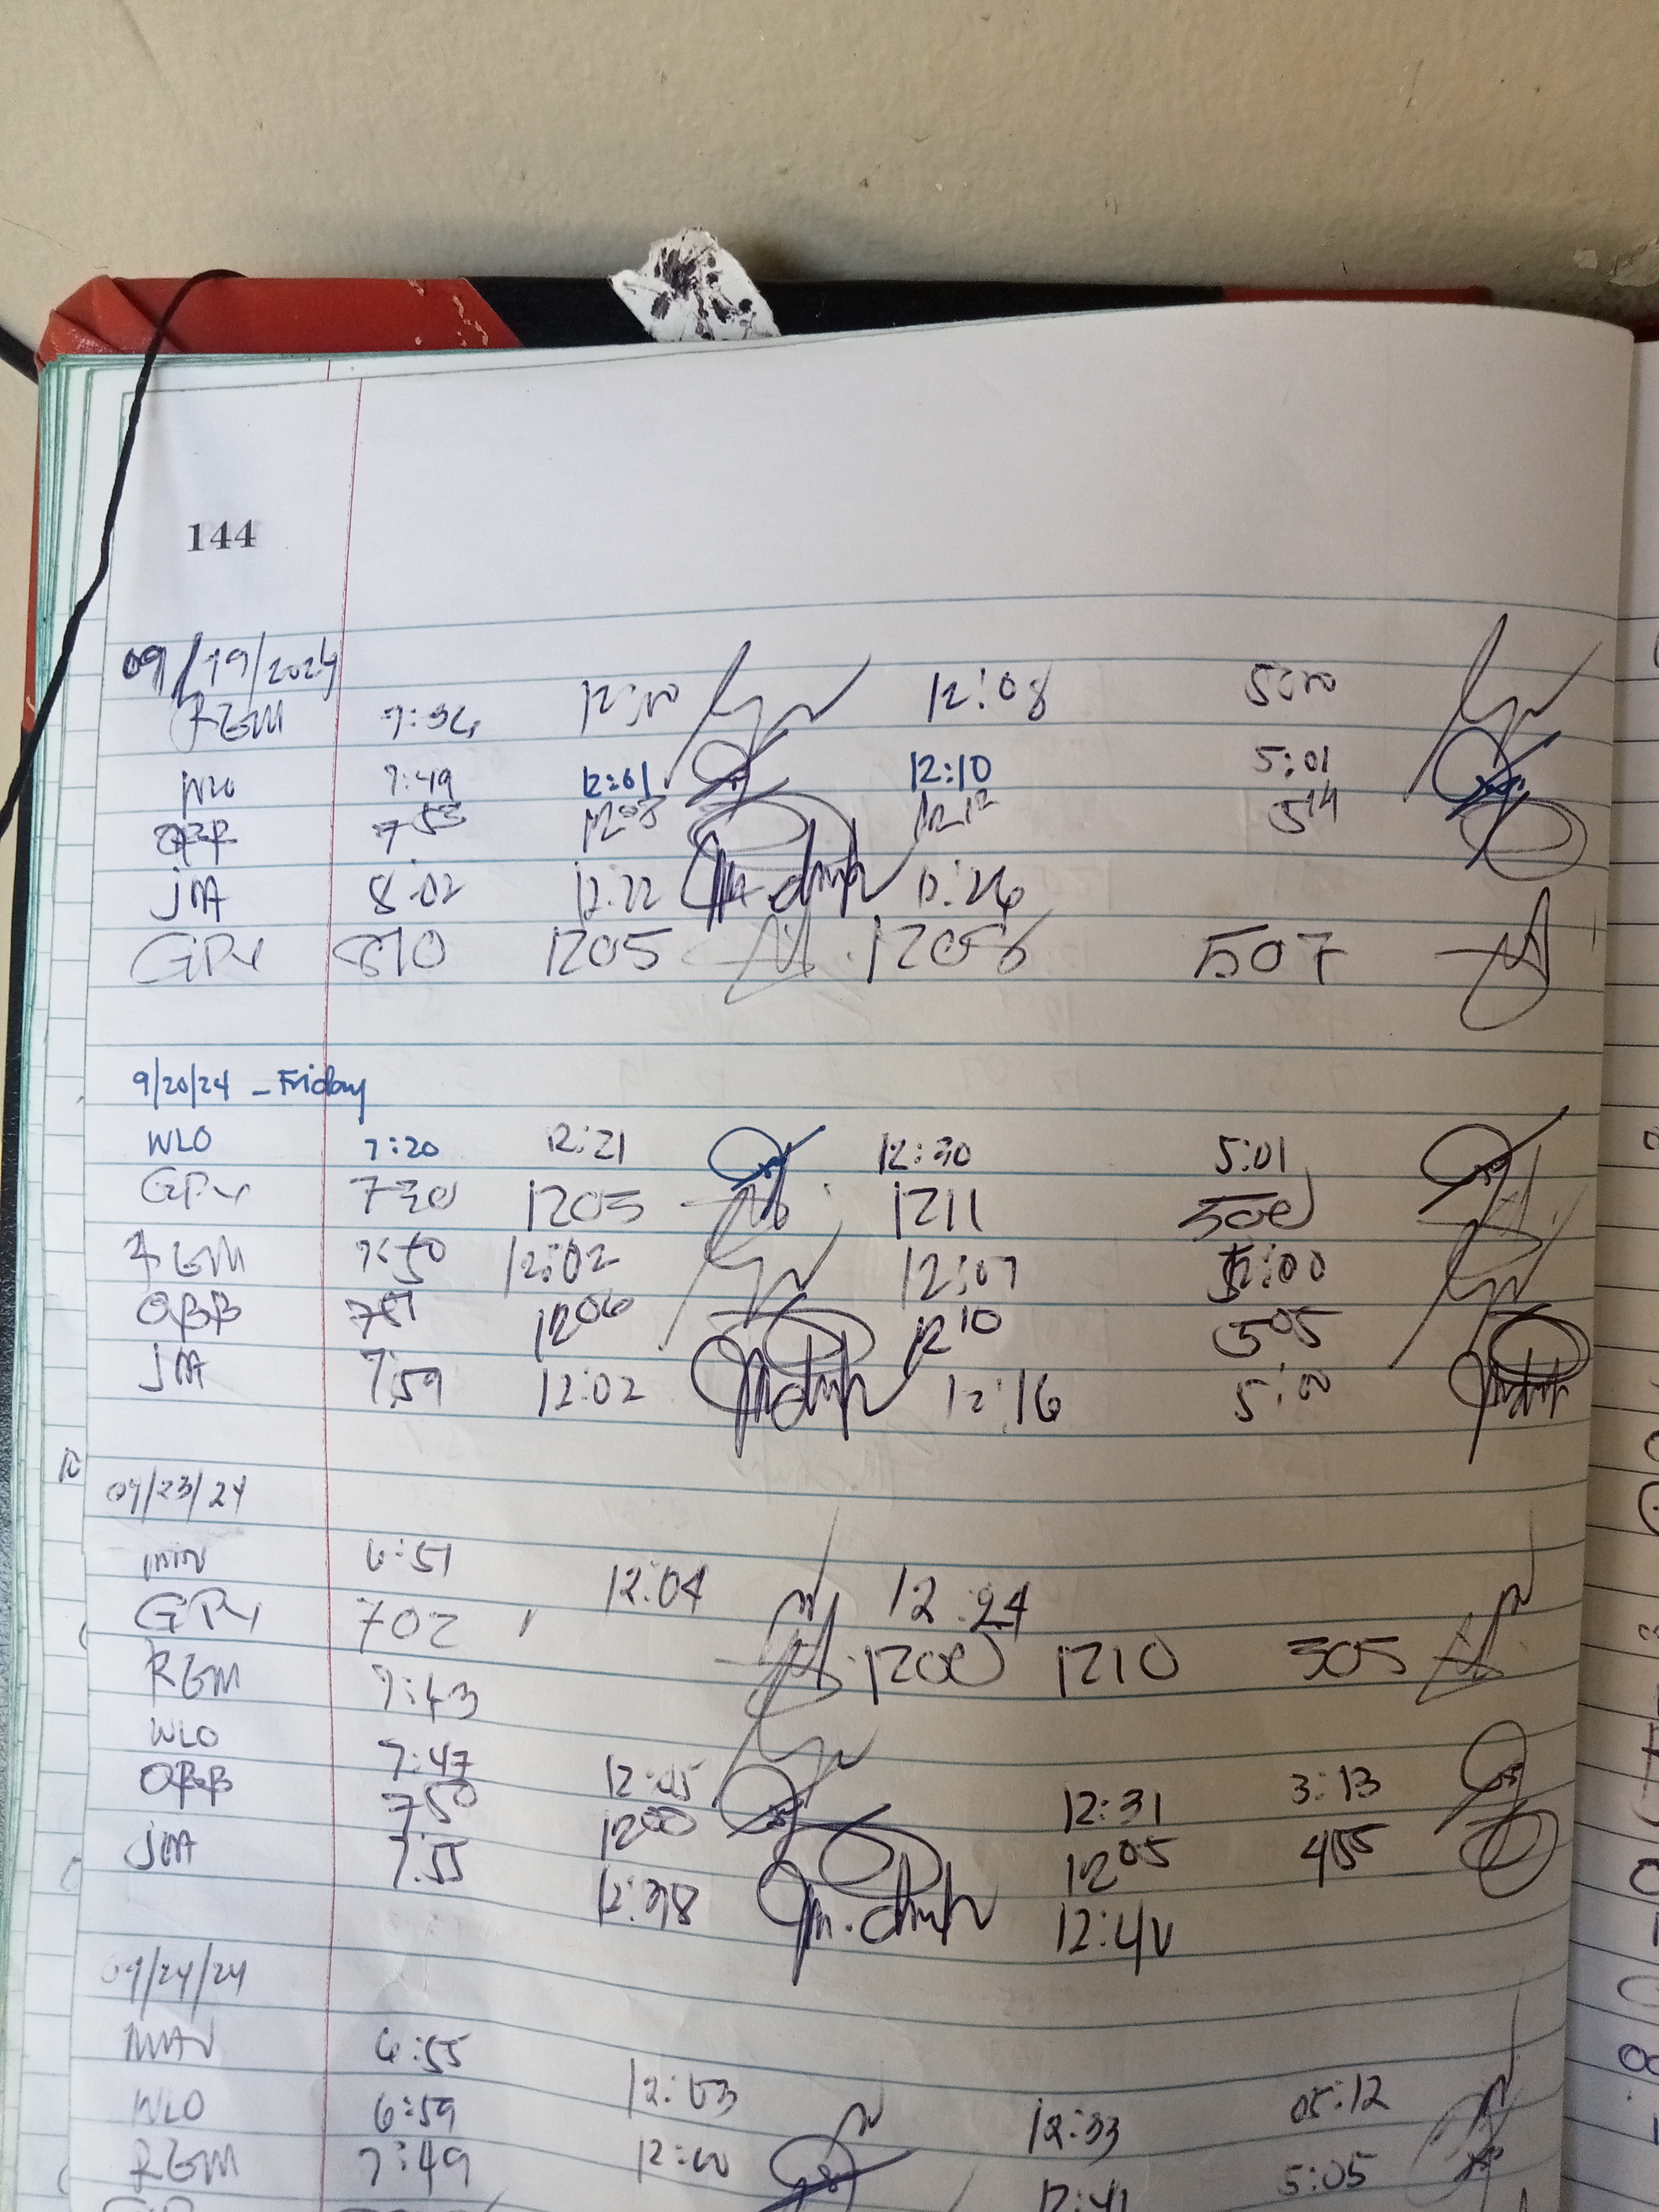 144
09/19/2024
RGM 7:36 12:00 12:08 5:00
WLO 7:49 12:01 12:10 5:01
753 1208 1212 514
JMA 8:02 12:22 12:26
GPY 810 1205 1206 507
9/20/24 - Friday
WLO 7:20 12:21 12:30 5:01
GPY 730 1205 1211 500
RGM 7:50 12:02 12:07 5:00
OBB 751 1206 1210 505
JMA 7:59 12:02 12:16 5:00
09/23/24
6:51 12:04 12:24
GPY 702 1200 1210 505
RGM 7:43
WLO 7:47 12:05 12:31 3:13
OBB 750 1200 1205 455
JMA 7:55 12:38 12:40
09/24/24
MAV 6:55 12:03 12:33 05:12
WLO 6:59 12:00 12:41 5:05
RGM 7:49